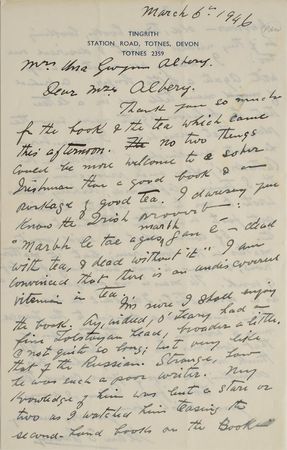 March 6th 1946
TINGRITH
STATION ROAD, TOTNES, DEVON
TOTNES 2359
Mrs Una Gwynn Albery.
Dear Mrs Albery.
Thank you so much
for the book & the tea which came
this afternoon. no two things
could be more welcome to a sober
Irishman than a good book & a
package of good tea. I daresay you
know the Irish proverb:
"Marbh le tae agus marbh gan é – dead
with tea, & dead without it". I am
convinced that there is an undiscovered
vitamin in tea.
I'm sure I shall enjoy
the book. Ay, indeed, O'Leary had a
fine Tolstoyan head, broader a little,
& not quite so long; but very like
that of the Russian. Strange, how
he was such a poor writer. My
knowledge of him was but a stare or
two as I watched him teasing the
second-hand books on the Book